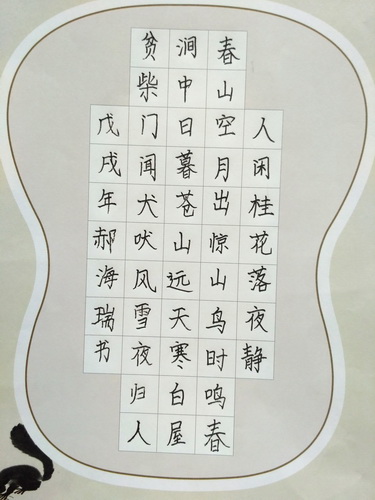 人闲桂花落夜静
春山空月出惊山鸟时鸣春
涧中日暮苍山远天寒白屋
贫柴门闻犬吠风雪夜归人
戊戌年郝海瑞书